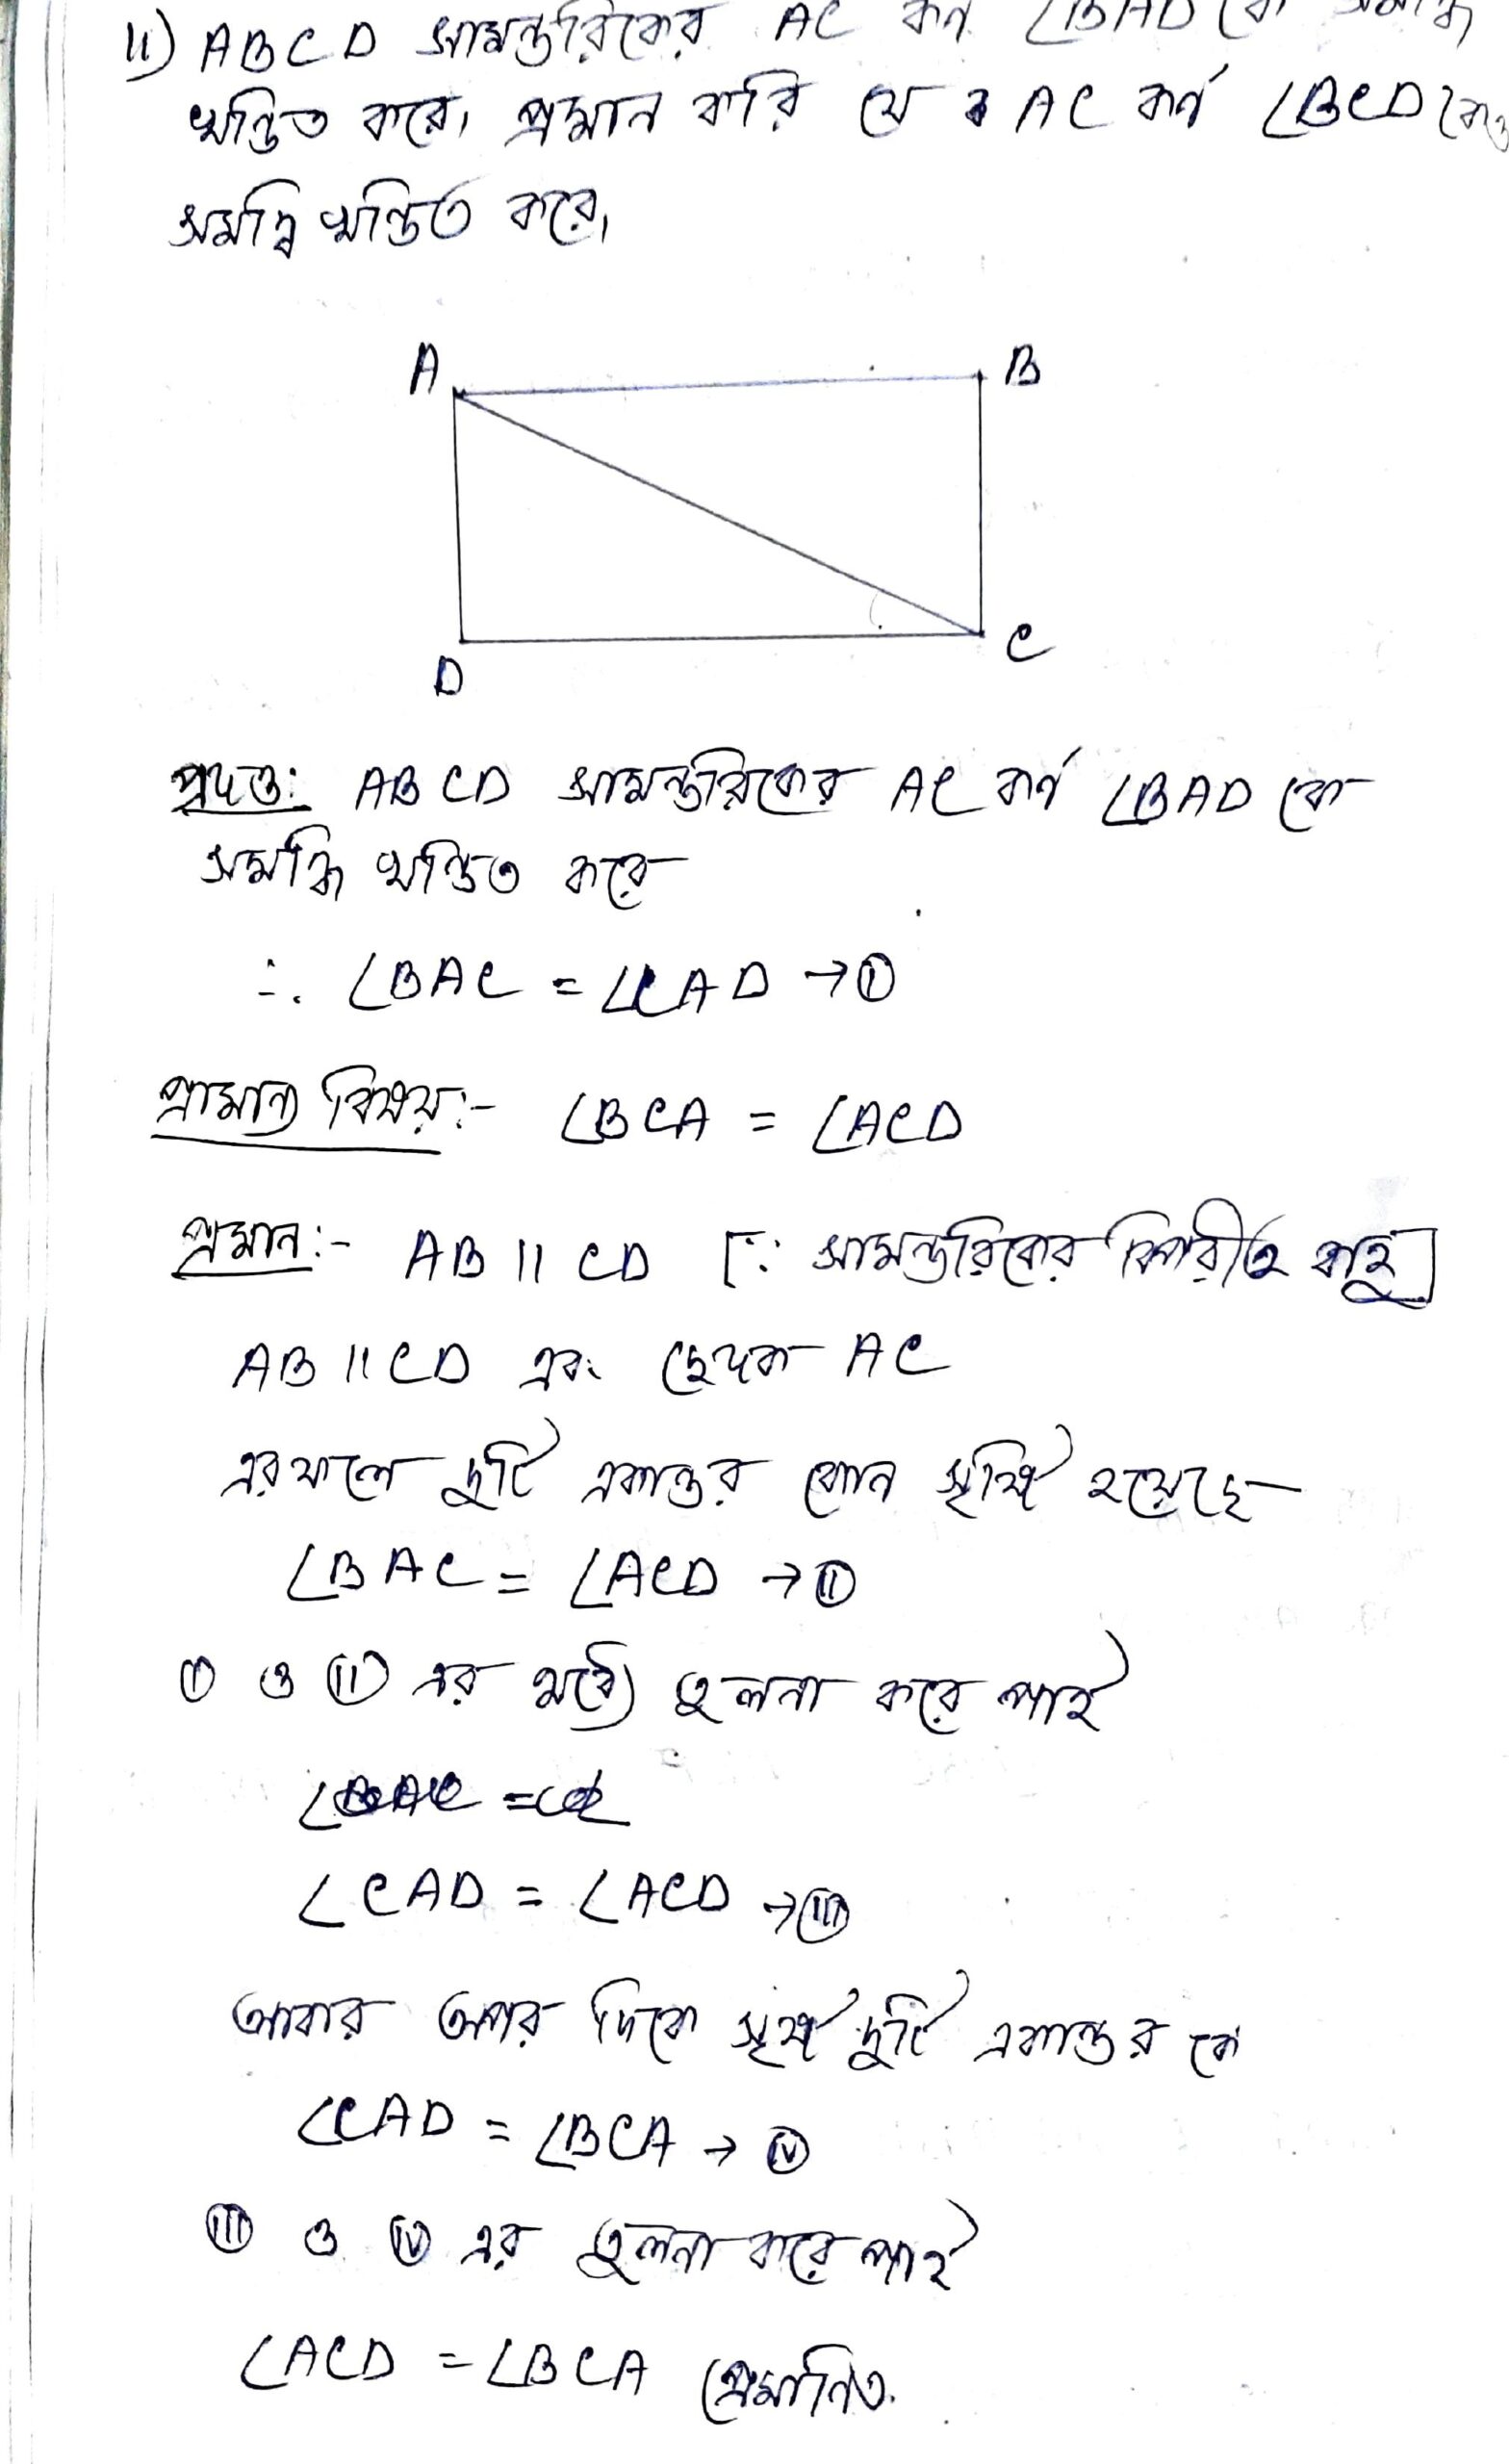 11) ABCD সামন্তরিকের AC কর্ণ ∠BAD কে
খন্ডিত করে, প্রমান করি যে AC কর্ণ ∠BCD কেও
সমদ্বি খন্ডিত করে,
A B
D C
প্রদত্ত: ABCD সামন্তরিকের AC কর্ণ ∠BAD কে
সমদ্বি খন্ডিত করে
∴ ∠BAC = ∠CAD → (I)
প্রামান্য বিষয়:- ∠BCA = ∠ACD
প্রমান:- AB || CD [∵ সামন্তরিকের বিপরীত বাহু]
AB || CD এবং ছেদক AC
এর ফলে দুটি একান্তর কোন সৃষ্টি হয়েছে
∠BAC = ∠ACD → (II)
(I) ও (II) এর মধ্যে তুলনা করে পাই
∠CAD = ∠ACD → (III)
আবার অপর দিকে সৃষ্ট দুটি একান্তর কো
∠CAD = ∠BCA → (IV)
(III) ও (IV) এর তুলনা করে পাই
∠ACD = ∠BCA (প্রমানিত.